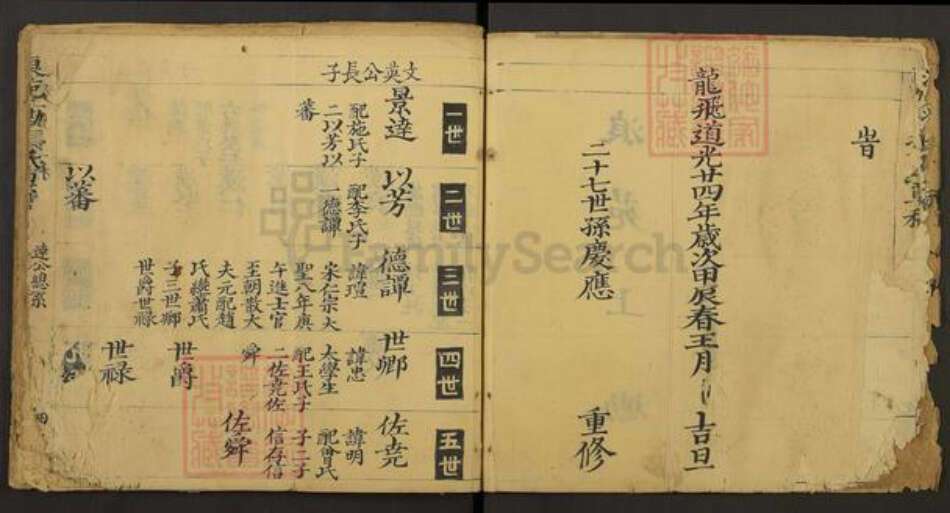 旹
龍飛道光廿四年歲次甲辰春王月 吉旦
二十七世孫慶應 重修
文英公長子
一世
景達
配施氏子
二以芳以
蕃
二世
以芳
配李氏子
一德譚
以蕃
三世
德譚
諱瑄
宋仁宗大
聖八年庚
午進士官
至朝散大
夫元配趙
氏繼蕭氏
子三世卿
世爵世禄
四世
世卿
諱忠
太學生
配王氏子
二佐堯佐
舜
世爵
世禄
五世
佐堯
諱明
配曾氏
子二子
信存信
佐舜
達公總系
FamilySearch